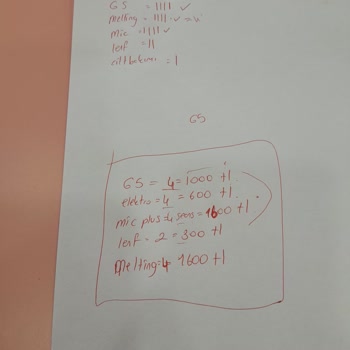 GS = |||| ✓
melting = ||||
mic = |||| ✓
leaf = ||
= |
GS
GS = 4 = 1000 +1
elektro = 4 = 600 +1
mic plus = 4 = 1600 +1
leaf = 2 = 300 +1
Melting = 4 1600 +1